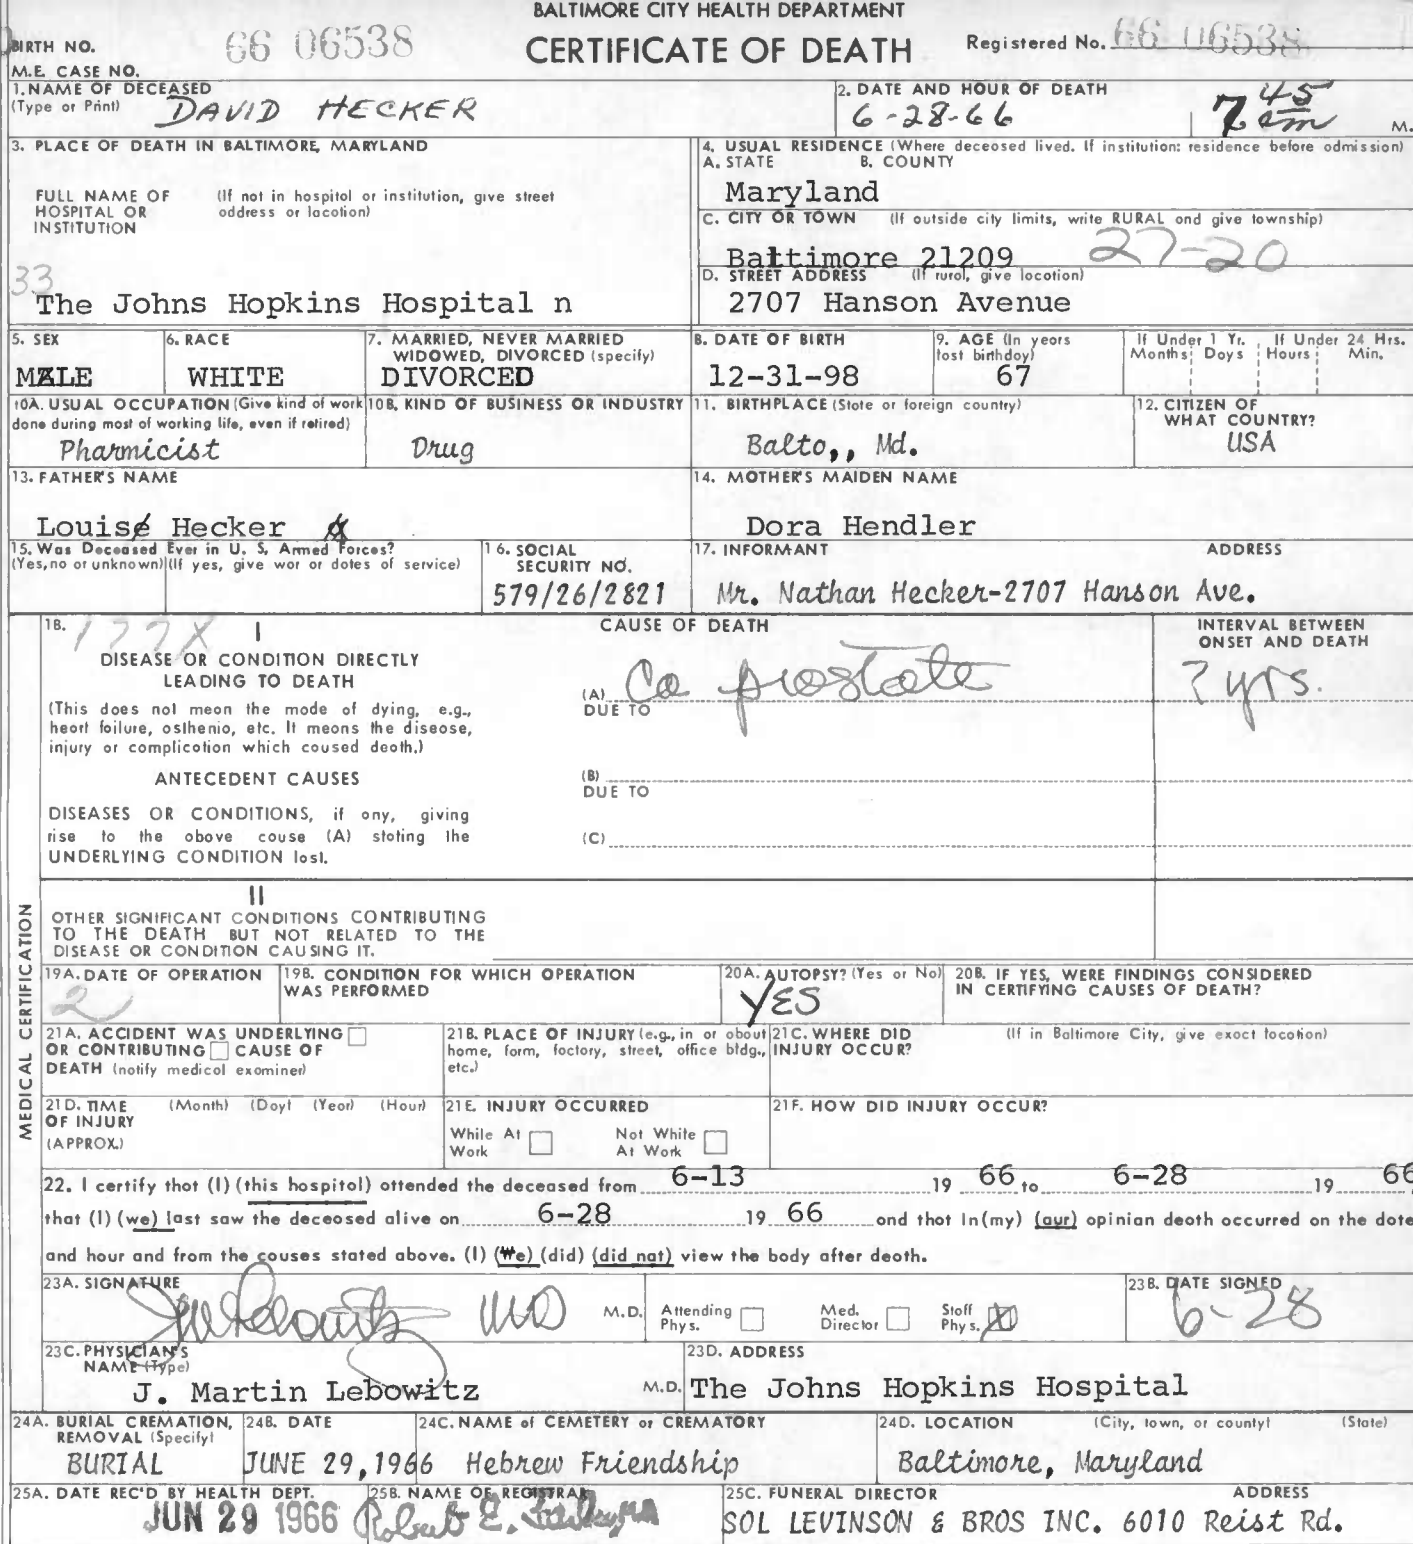 BALTIMORE CITY HEALTH DEPARTMENT
BIRTH NO. 66 06538 CERTIFICATE OF DEATH Registered No. 66 06538
M.E. CASE NO.
1. NAME OF DECEASED
(Type or Print) DAVID HECKER
2. DATE AND HOUR OF DEATH
6-28-66 7 45 am M.
3. PLACE OF DEATH IN BALTIMORE, MARYLAND
FULL NAME OF HOSPITAL OR INSTITUTION (If not in hospital or institution, give street address or location)
33
The Johns Hopkins Hospital n
4. USUAL RESIDENCE (Where deceased lived. If institution: residence before admission)
A. STATE B. COUNTY
Maryland
C. CITY OR TOWN (If outside city limits, write RURAL and give township)
Baltimore 21209 27-20
D. STREET ADDRESS (If rural, give location)
2707 Hanson Avenue
5. SEX
MALE
6. RACE
WHITE
7. MARRIED, NEVER MARRIED
WIDOWED, DIVORCED (specify)
DIVORCED
8. DATE OF BIRTH
12-31-98
9. AGE (In years
last birthday)
67
If Under 1 Yr. If Under 24 Hrs.
Months Days Hours Min.
10A. USUAL OCCUPATION (Give kind of work
done during most of working life, even if retired)
Pharmicist
10B. KIND OF BUSINESS OR INDUSTRY
Drug
11. BIRTHPLACE (State or foreign country)
Balto,, Md.
12. CITIZEN OF
WHAT COUNTRY?
USA
13. FATHER'S NAME
Louis Hecker
14. MOTHER'S MAIDEN NAME
Dora Hendler
15. Was Deceased Ever in U. S. Armed Forces?
(Yes, no or unknown) (If yes, give war or dates of service)
16. SOCIAL
SECURITY NO.
579/26/2821
17. INFORMANT ADDRESS
Mr. Nathan Hecker-2707 Hanson Ave.
MEDICAL CERTIFICATION
18. 177X I
DISEASE OR CONDITION DIRECTLY
LEADING TO DEATH
(This does not mean the mode of dying, e.g.,
heart failure, asthenia, etc. It means the disease,
injury or complication which caused death.)
ANTECEDENT CAUSES
DISEASES OR CONDITIONS, if any, giving
rise to the above cause (A) stating the
UNDERLYING CONDITION last.
CAUSE OF DEATH
(A) Ca prostate
DUE TO
(B)
DUE TO
(C)
INTERVAL BETWEEN
ONSET AND DEATH
? yrs.
II
OTHER SIGNIFICANT CONDITIONS CONTRIBUTING
TO THE DEATH BUT NOT RELATED TO THE
DISEASE OR CONDITION CAUSING IT.
19A. DATE OF OPERATION
2
19B. CONDITION FOR WHICH OPERATION
WAS PERFORMED
20A. AUTOPSY? (Yes or No)
YES
20B. IF YES, WERE FINDINGS CONSIDERED
IN CERTIFYING CAUSES OF DEATH?
21A. ACCIDENT WAS UNDERLYING
OR CONTRIBUTING CAUSE OF
DEATH (notify medical examiner)
21B. PLACE OF INJURY (e.g., in or about
home, farm, factory, street, office bldg.,
etc.)
21C. WHERE DID (If in Baltimore City, give exact location)
INJURY OCCUR?
21D. TIME (Month) (Day) (Year) (Hour)
OF INJURY
(APPROX.)
21E. INJURY OCCURRED
While At Work Not While At Work
21F. HOW DID INJURY OCCUR?
22. I certify that (I) (this hospital) attended the deceased from 6-13 19 66 to 6-28 19 66
that (I) (we) last saw the deceased alive on 6-28 19 66 and that in(my) (our) opinion death occurred on the date
and hour and from the causes stated above. (I) (We) (did) (did not) view the body after death.
23A. SIGNATURE
J M Lebowitz MD M.D. Attending Phys. Med. Director Staff Phys. X
23B. DATE SIGNED
6-28
23C. PHYSICIAN'S
NAME (Type)
J. Martin Lebowitz M.D.
23D. ADDRESS
The Johns Hopkins Hospital
24A. BURIAL CREMATION,
REMOVAL (Specify)
BURIAL
24B. DATE
JUNE 29, 1966
24C. NAME of CEMETERY or CREMATORY
Hebrew Friendship
24D. LOCATION (City, town, or county) (State)
Baltimore, Maryland
25A. DATE REC'D BY HEALTH DEPT.
JUN 29 1966
25B. NAME OF REGISTRAR
Robert E.
25C. FUNERAL DIRECTOR ADDRESS
SOL LEVINSON & BROS INC. 6010 Reist Rd.